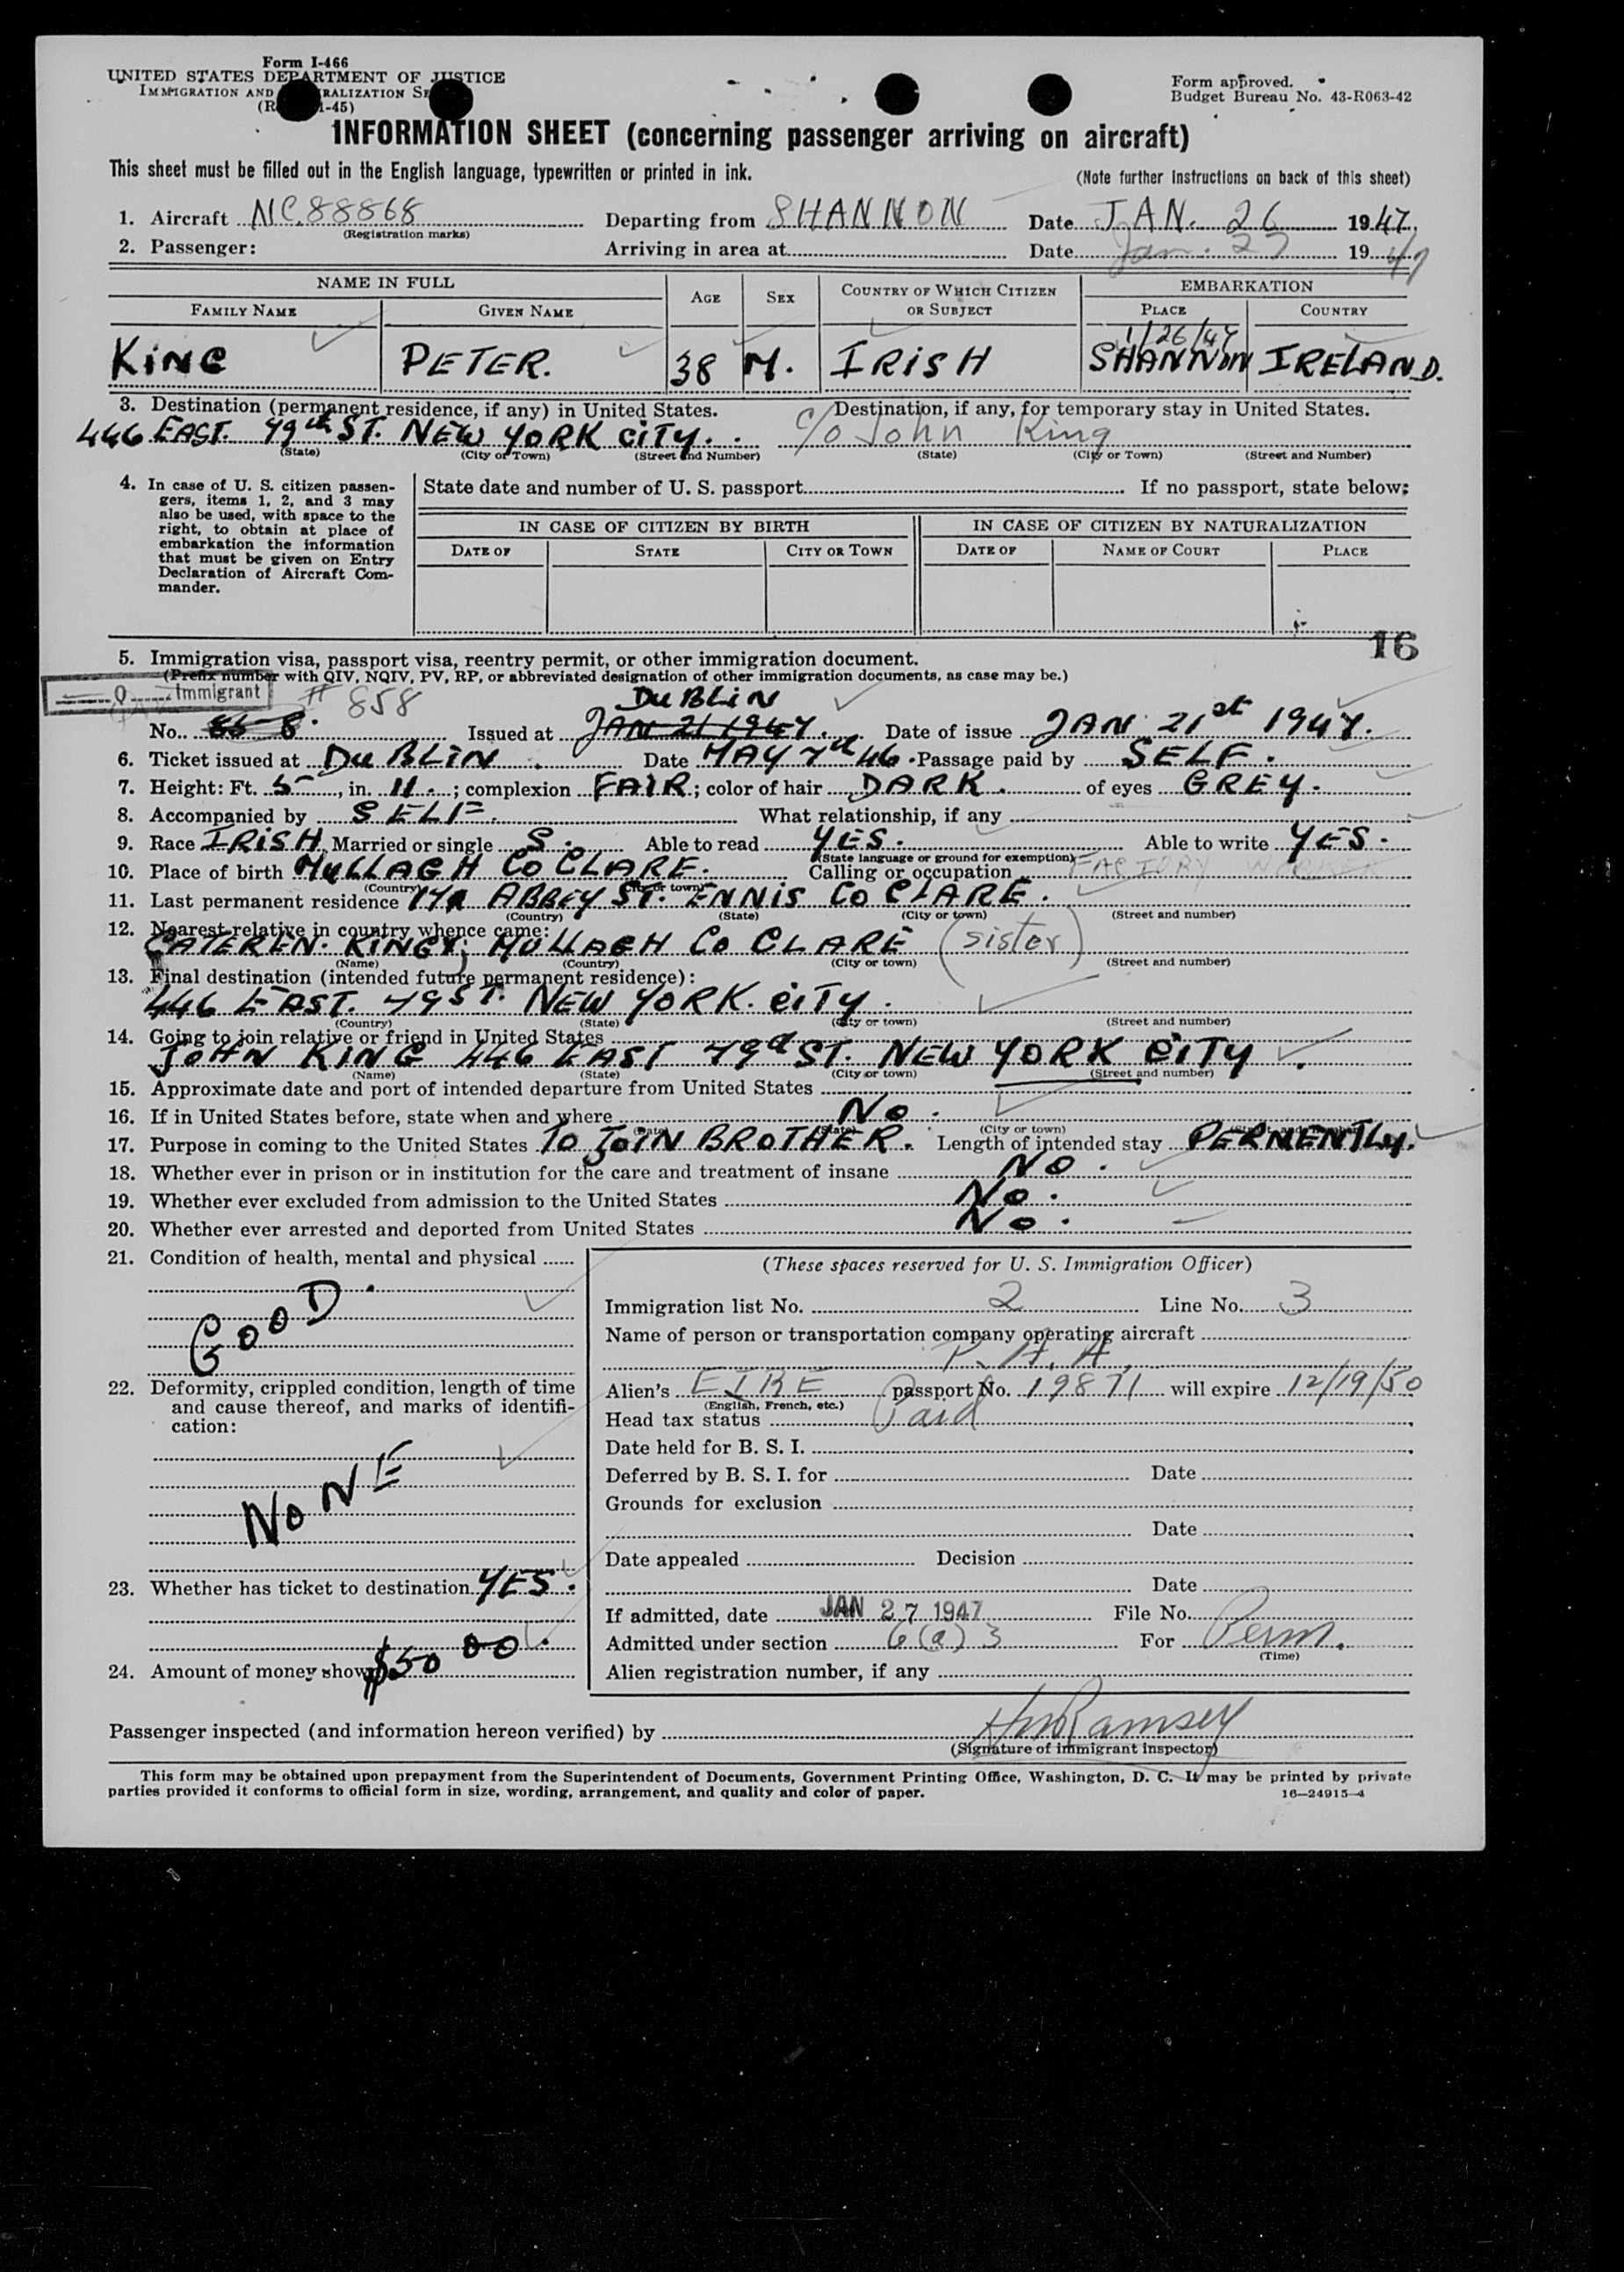 Form I-466
UNITED STATES DEPARTMENT OF JUSTICE
IMMIGRATION AND RALIZATION SE
(R 1-45)
Form approved.
Budget Bureau No. 43-R063-42
INFORMATION SHEET (concerning passenger arriving on aircraft)
This sheet must be filled out in the English language, typewritten or printed in ink.
(Note further instructions on back of this sheet)
1. Aircraft NC88868 Departing from SHANNON Date JAN. 26 1947
(Registration marks)
2. Passenger: Arriving in area at Date Jan. 27 1947
NAME IN FULL AGE SEX COUNTRY OF WHICH CITIZEN OR SUBJECT EMBARKATION
FAMILY NAME GIVEN NAME PLACE COUNTRY
1/26/47
KING PETER. 38 M. IRISH SHANNON IRELAND.
3. Destination (permanent residence, if any) in United States. Destination, if any, for temporary stay in United States.
446 EAST. 79th ST. NEW YORK CITY. c/o John King
(State) (City or Town) (Street and Number) (State) (City or Town) (Street and Number)
4. In case of U. S. citizen passen-
gers, items 1, 2, and 3 may
also be used, with space to the
right, to obtain at place of
embarkation the information
that must be given on Entry
Declaration of Aircraft Com-
mander.
State date and number of U. S. passport If no passport, state below:
IN CASE OF CITIZEN BY BIRTH IN CASE OF CITIZEN BY NATURALIZATION
DATE OF STATE CITY OR TOWN DATE OF NAME OF COURT PLACE
16
5. Immigration visa, passport visa, reentry permit, or other immigration document.
(Prefix number with QIV, NQIV, PV, RP, or abbreviated designation of other immigration documents, as case may be.)
Q Immigrant # 858 DUBLIN
No. 858. Issued at JAN 21 1947. Date of issue JAN 21st 1947.
6. Ticket issued at DUBLIN. Date MAY 7th 46. Passage paid by SELF.
7. Height: Ft. 5, in. 11.; complexion FAIR; color of hair DARK. of eyes GREY.
8. Accompanied by SELF. What relationship, if any
9. Race IRISH Married or single S. Able to read YES. Able to write YES.
(State language or ground for exemption)
10. Place of birth MULLAGH CO CLARE. Calling or occupation FACTORY WORKER
(Country) (City or town)
11. Last permanent residence 17A ABBEY ST. ENNIS CO CLARE.
(Country) (State) (City or town) (Street and number)
12. Nearest relative in country whence came:
CATEREN. KINGY; MULLAGH CO CLARE (sister)
(Name) (Country) (City or town) (Street and number)
13. Final destination (intended future permanent residence):
446 EAST. 79 ST. NEW YORK. CITY.
(Country) (State) (City or town) (Street and number)
14. Going to join relative or friend in United States
JOHN KING 446 EAST 79 ST. NEW YORK CITY.
(Name) (State) (City or town) (Street and number)
15. Approximate date and port of intended departure from United States
16. If in United States before, state when and where No.
(Date) (State) (City or town)
17. Purpose in coming to the United States TO JOIN BROTHER. Length of intended stay PERMENTLY.
18. Whether ever in prison or in institution for the care and treatment of insane NO.
19. Whether ever excluded from admission to the United States No.
20. Whether ever arrested and deported from United States No.
21. Condition of health, mental and physical
GOOD.
22. Deformity, crippled condition, length of time
and cause thereof, and marks of identifi-
cation:
NONE
23. Whether has ticket to destination YES.
24. Amount of money shown $50 00.
(These spaces reserved for U. S. Immigration Officer)
Immigration list No. 2 Line No. 3
Name of person or transportation company operating aircraft
P. A. A.
Alien's EIRE passport No. 19871 will expire 12/19/50
(English, French, etc.)
Head tax status Paid
Date held for B. S. I.
Deferred by B. S. I. for Date
Grounds for exclusion
Date
Date appealed Decision
Date
If admitted, date JAN 27 1947 File No.
Admitted under section 6(a)3 For Perm.
(Time)
Alien registration number, if any
Passenger inspected (and information hereon verified) by Ramsey
(Signature of immigrant inspector)
This form may be obtained upon prepayment from the Superintendent of Documents, Government Printing Office, Washington, D. C. It may be printed by private
parties provided it conforms to official form in size, wording, arrangement, and quality and color of paper.
16—24915-4